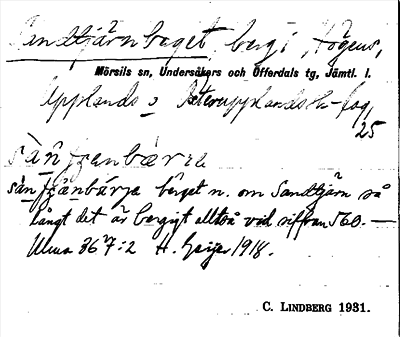 Sandtjärnberget, berg i Högens,
Mörsils sn, Undersåkers och Offerdals tg, Jämtl. l.
Upplands o
25
sàn̂ tjanbærja
sàn tjànbárja bèrget n. om Sandtjärn så
långt det är bergigt alltså vid siffran 560. —
Ulma 367:2 H. Geijer 1918.
C. LINDBERG 1931.